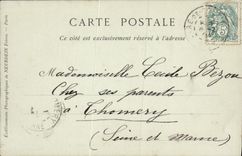 CARTE POSTALE
Ce côté est exclusivement réservé à l'adresse
Mademoiselle Cécile Bezou
Chez ses parents
à Thomery
(Seine et Marne)
Etablissements Photographiques de NEURDEIN Frères. — Paris